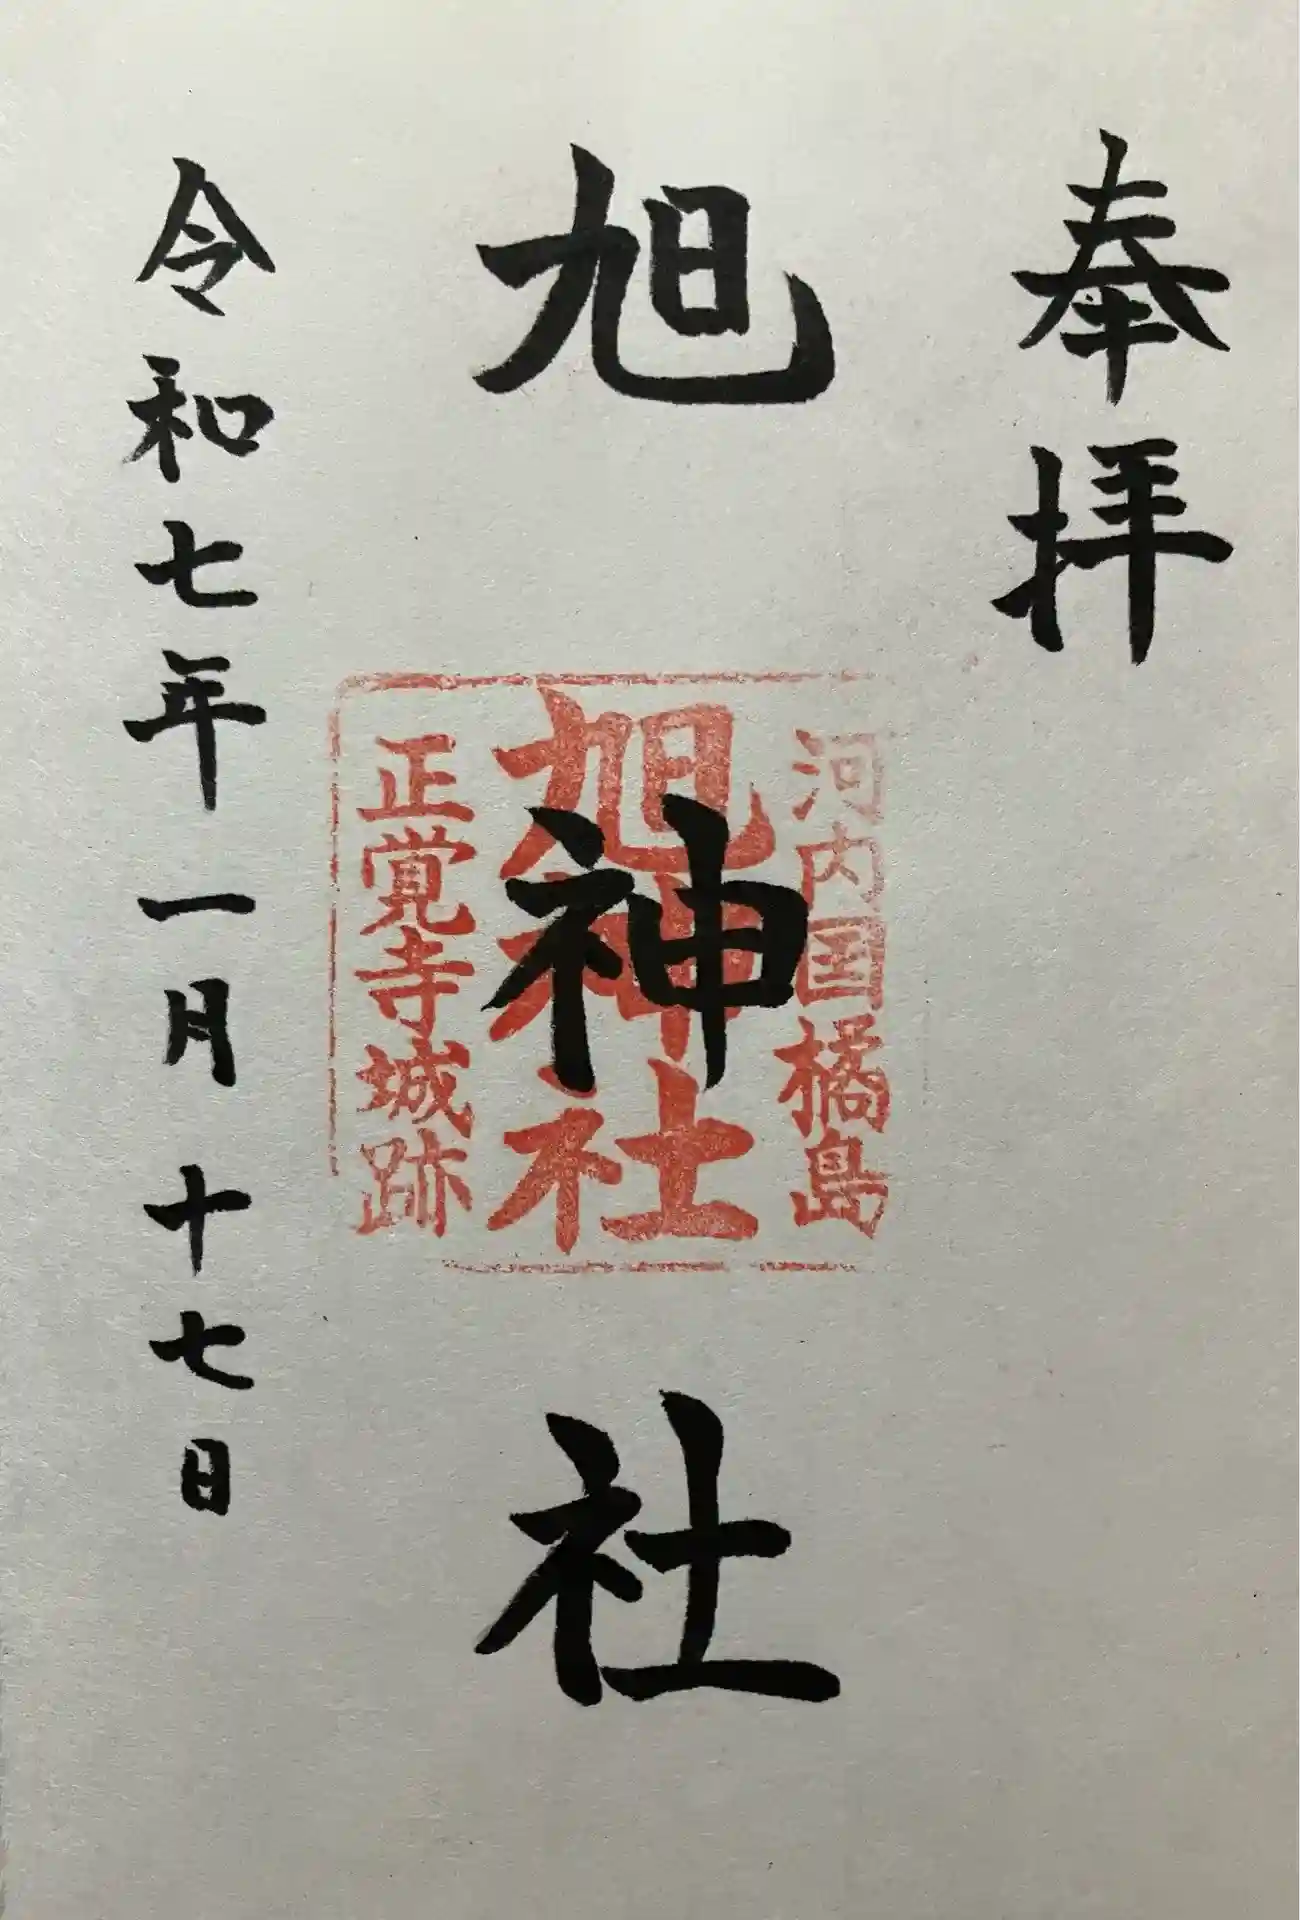 奉拝
旭神社
河内国橘島
旭神社
正覚寺城跡
令和七年一月十七日